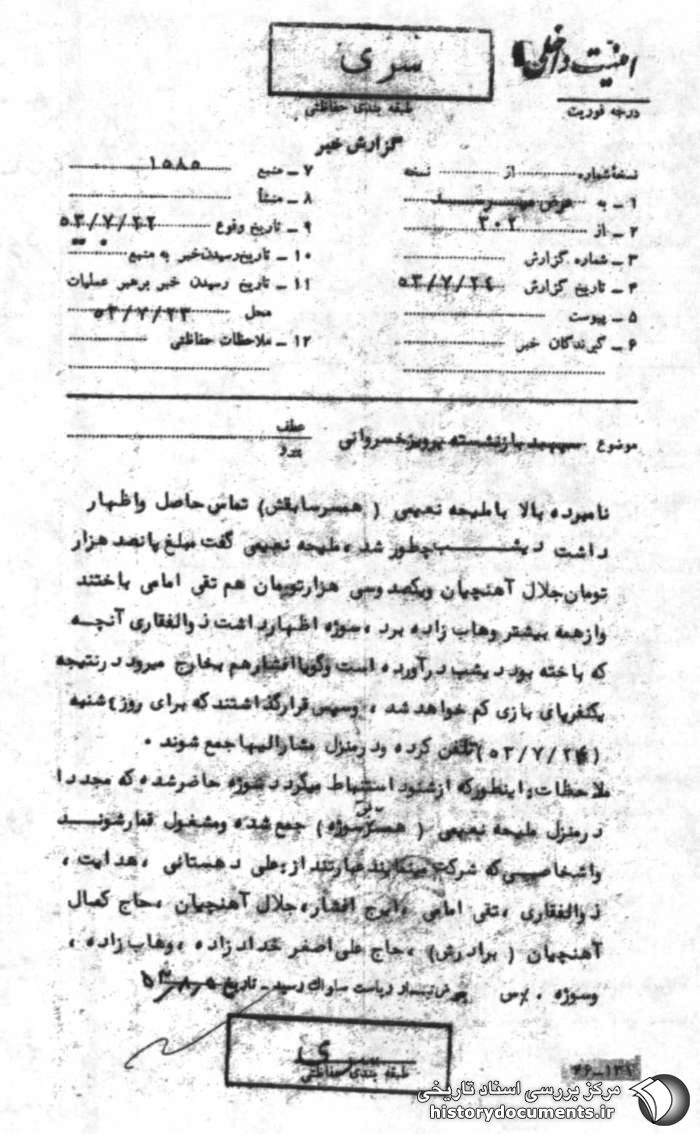 سری
امنیت داخلی
طبقه بندی حفاظتی
درجه فوریت
گزارش خبر
نسخه شماره از نسخه
۱ ـ به عرض میرسد
۲ ـ از ۳۰۲
۳ ـ شماره گزارش
۴ ـ تاریخ گزارش ۵۳/۷/۲۴
۵ ـ پیوست
۶ ـ گیرندگان خبر
۷ ـ منبع ۱۵۸۵
۸ ـ منشأ
۹ ـ تاریخ وقوع ۵۳/۷/۲۲
۱۰ ـ تاریخ رسیدن خبر به منبع
۱۱ ـ تاریخ رسیدن خبر برهبر عملیات
محل ۵۳/۷/۲۳
۱۲ ـ ملاحظات حفاظتی
موضوع سپهبد بازنشسته پرویز خسروانی
عطف
پیرو
نامبرده بالا با ملیحه نعیمی ( همسر سابقش) تماس حاصل واظهار
داشت دیشب چطور شد ، ملیحه نعیمی گفت مبلغ پانصد هزار
تومان جلال آهنچیان ویکصد وسی هزار تومان هم تقی امامی باختند
وازهمه بیشتر وهاب زاده برد ، سوژه اظهار داشت ذوالفقاری آنچه
که باخته بود دیشب درآورده است وگویا افشارهم بخارج میرود درنتیجه
یکنفر پای بازی کم خواهد شد ، وسپس قرار گذاشتند که برای روز ۴ شنبه
(۵۳/۷/۲۴) تلفن کرده ودر منزل مشارالیها جمع شوند .
ملاحظات : اینطور که از شنود استنباط میگردد سوژه حاضر شده که مجددا
در منزل ملیحه نعیمی ( همسر سوژه ) جمع شده ومشغول قمار شوند
واشخاصی که شرکت مینمایند عبارتند از : علی دهستانی ، هدایت ،
ذوالفقاری ، تقی امامی ، ایرج افشار ، جلال آهنچیان ، حاج کمال
آهنچیان ( برادرش ) ، حاج علی اصغر خداداد زاده ، وهاب زاده ،
وسوژه . /س
ریاست ساواک رسید ـ تاریخ
سری
طبقه بندی حفاظتی
۴۶-۱۳۱
مرکز بررسی اسناد تاریخی
historydocuments.ir